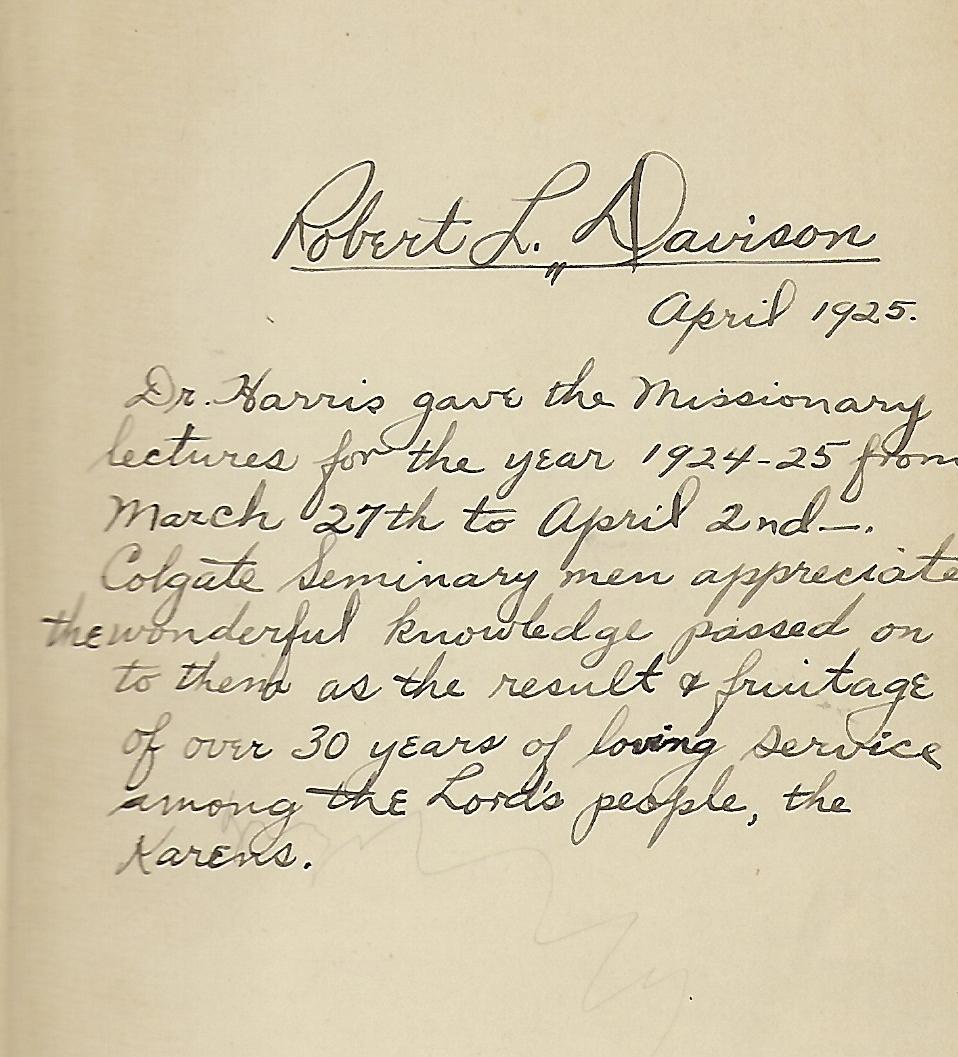 Robert L. Davison
April 1925.
Dr. Harris gave the Missionary
lectures for the year 1924-25 from
March 27th to April 2nd—.
Colgate Seminary men appreciate
the wonderful knowledge passed on
to them as the result & fruitage
of over 30 years of loving service
among the Lord's people, the
Karens.